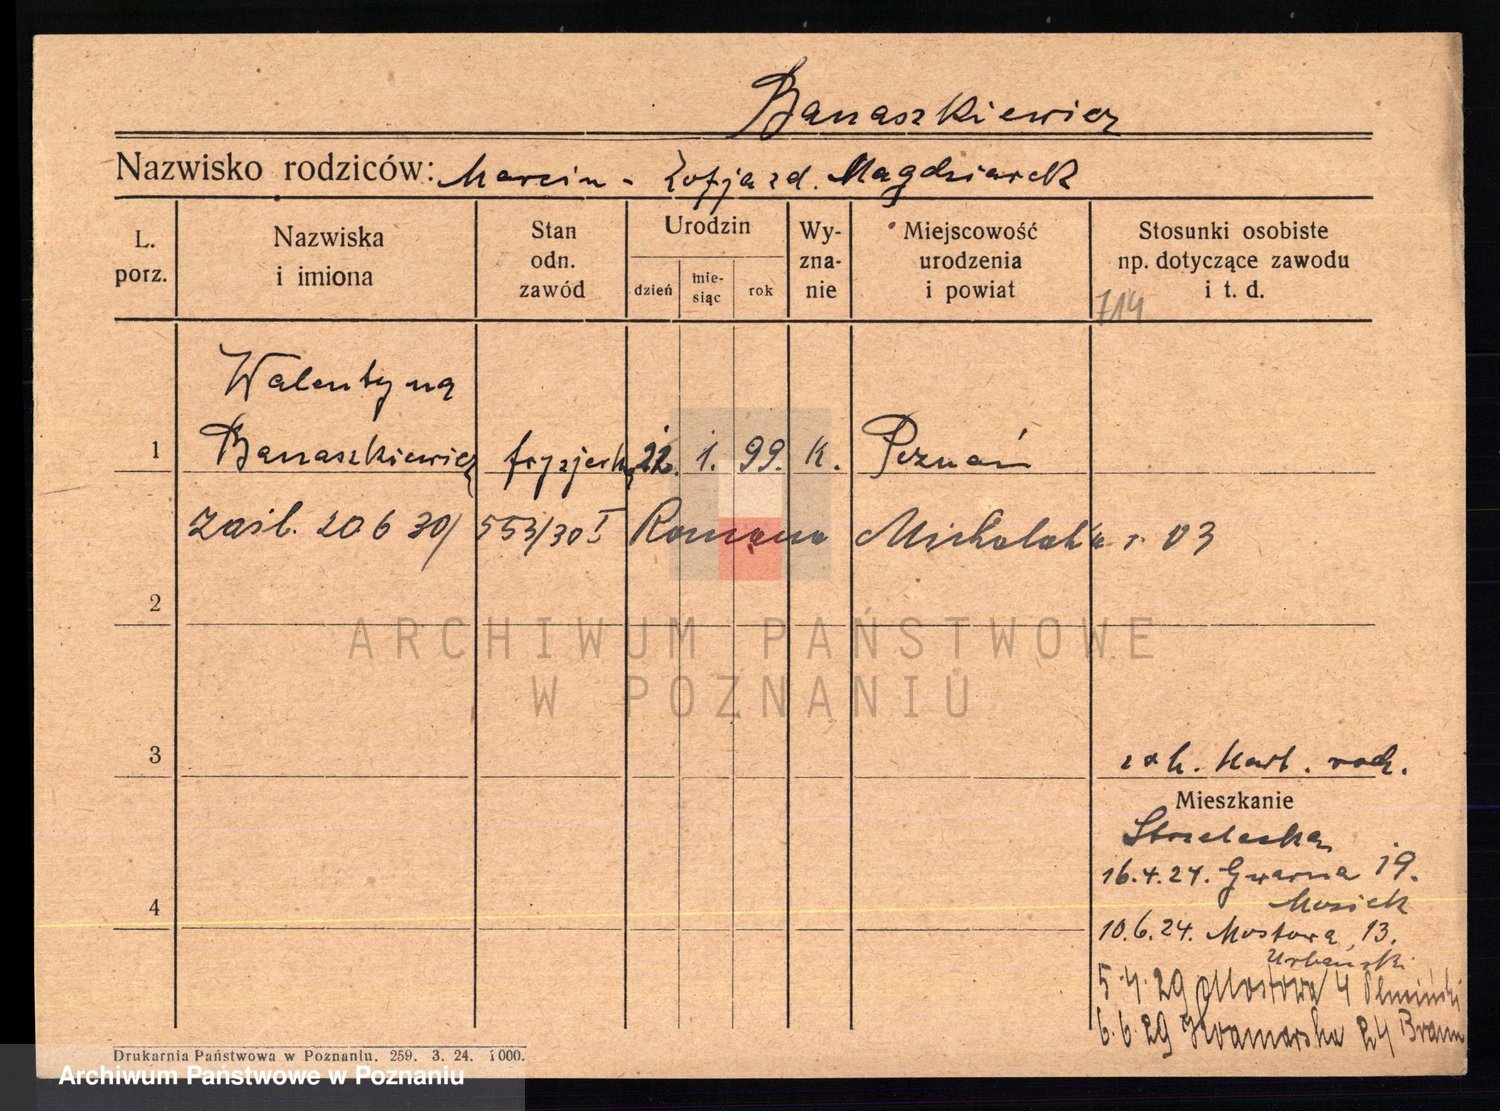 Banaszkiewicz
Nazwisko rodziców: Marcin - Zofja zd. Magdziarek
L. porz.
Nazwiska i imiona
Stan odn. zawód
Urodzin
dzień
mie-siąc
rok
Wy-zna-nie
Miejscowość urodzenia i powiat
Stosunki osobiste np. dotyczące zawodu i t. d.
714
Walentyna
1 Banaszkiewicz fryzjerka 22. 1. 99. K. Poznań
zaśl. 20 6 30/ 553/30 I Romana Michalak'a r. 03
2
ARCHIWUM PAŃSTWOWE
W POZNANIU
3
Mieszkanie
Strzelecka
4
16.4.24. Gwarna 19.
10.6.24. Mostowa 13.
Urbański
5.4.29 Mostowa 4
6.6.29 24 Braun
Drukarnia Państwowa w Poznaniu. 259. 3. 24. 1000.
Archiwum Państwowe w Poznaniu